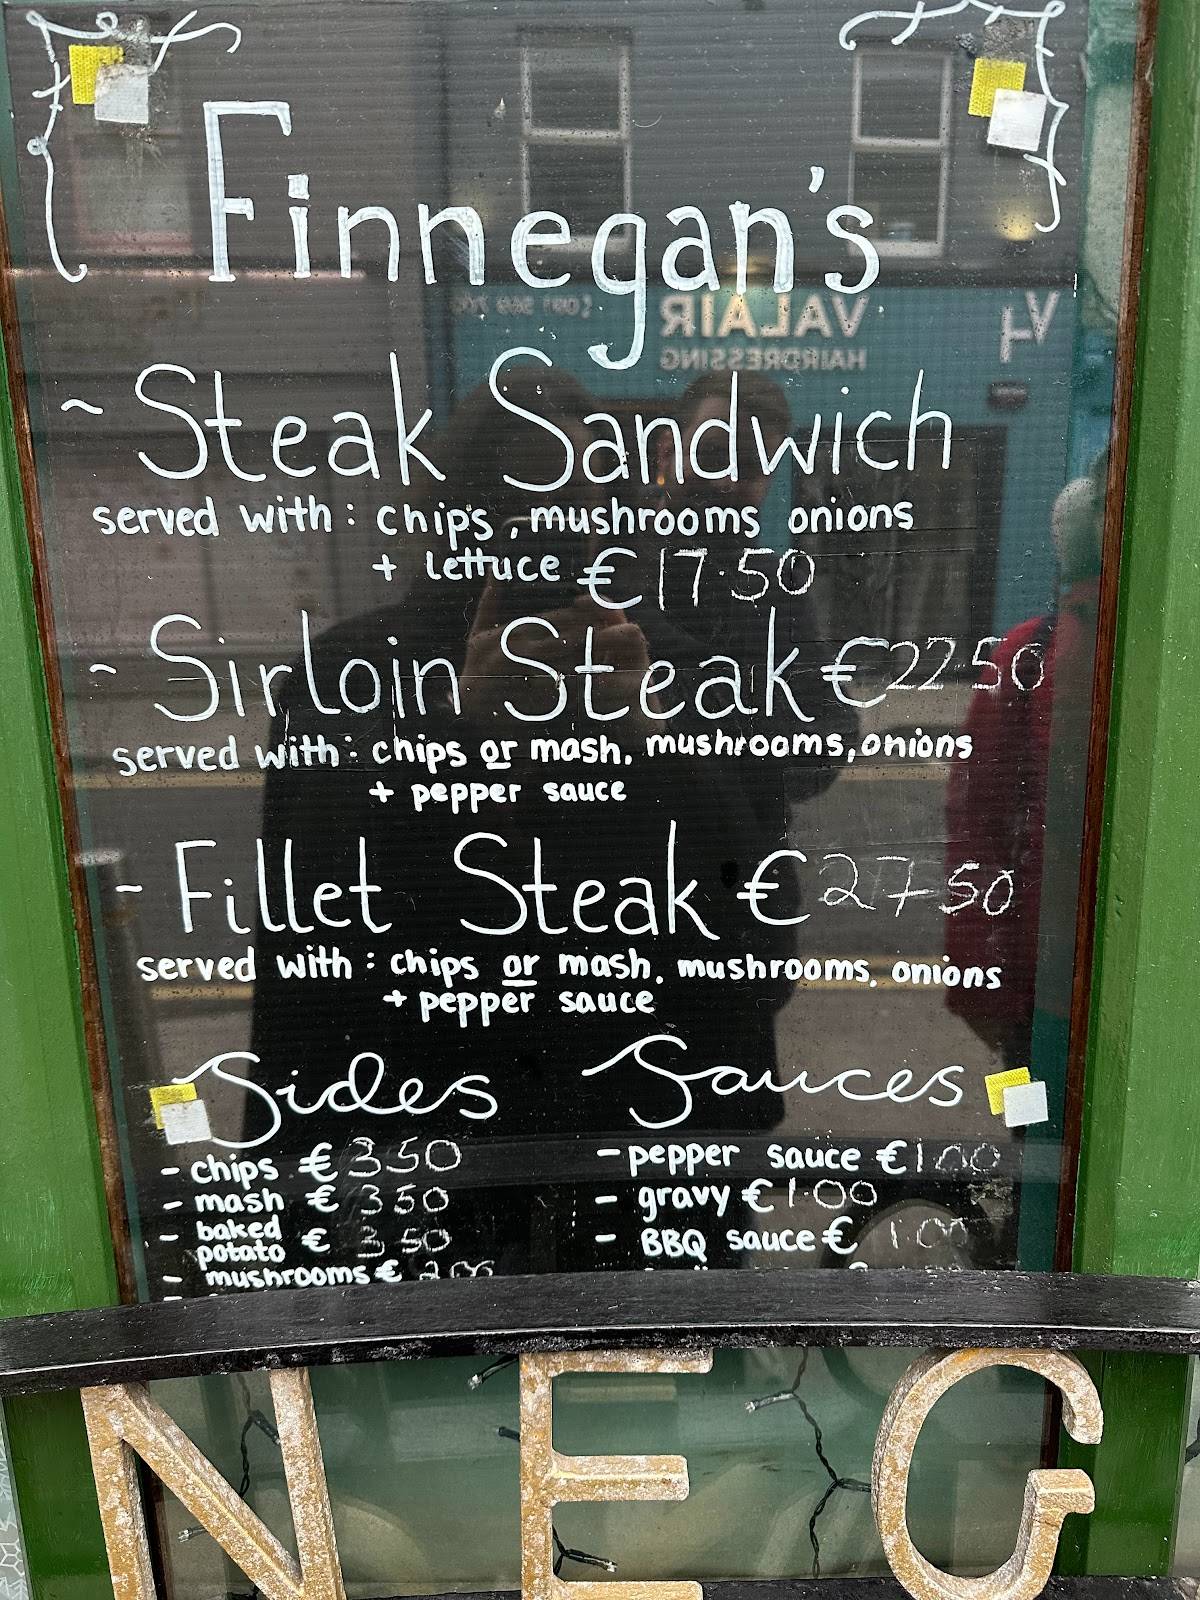 Finnegan's
~ Steak Sandwich
served with: chips, mushrooms onions
+ lettuce €17.50
~ Sirloin Steak €22 50
served with: chips or mash, mushrooms, onions
+ pepper sauce
- Fillet Steak €27 50
served with: chips or mash, mushrooms, onions
+ pepper sauce
Sides
- chips €3 50
- mash €3 50
- baked
potato €3 50
- mushrooms €2 00
Sauces
- pepper sauce €1 00
- gravy €1.00
- BBQ sauce €1.00
VALAIR
HAIRDRESSING
NEG